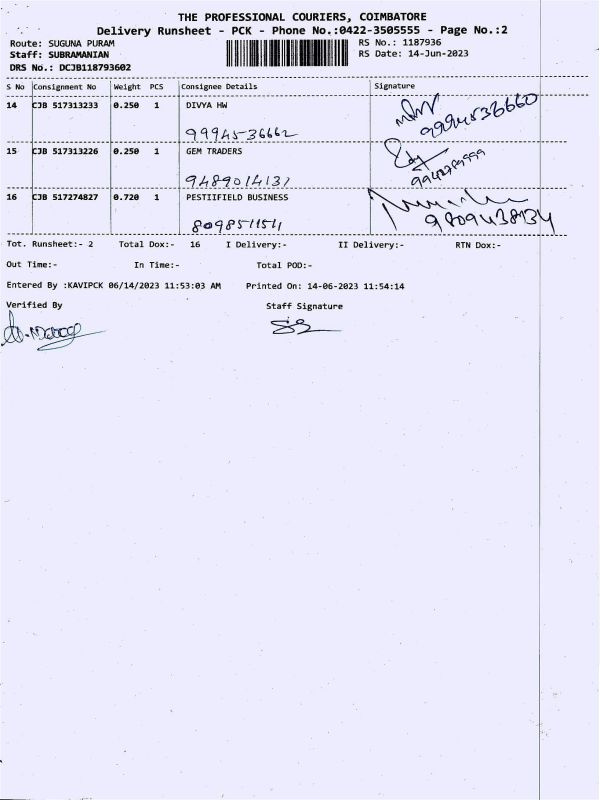 THE PROFESSIONAL COURIERS, COIMBATORE
Delivery Runsheet - PCK - Phone No.:0422-3505555 - Page No.:2
Route: SUGUNA PURAM RS No.: 1187936
Staff: SUBRAMANIAN RS Date: 14-Jun-2023
DRS No.: DCJB118793602
S No Consignment No Weight PCS Consignee Details Signature
14 CJB 517313233 0.250 1 DIVYA HW
9994536662 9994536660
15 CJB 517313226 0.250 1 GEM TRADERS
9489014137
16 CJB 517274827 0.720 1 PESTIIFIELD BUSINESS
8098511511 9809438134
Tot. Runsheet:- 2 Total Dox:- 16 I Delivery:- II Delivery:- RTN Dox:-
Out Time:- In Time:- Total POD:-
Entered By :KAVIPCK 06/14/2023 11:53:03 AM Printed On: 14-06-2023 11:54:14
Verified By Staff Signature